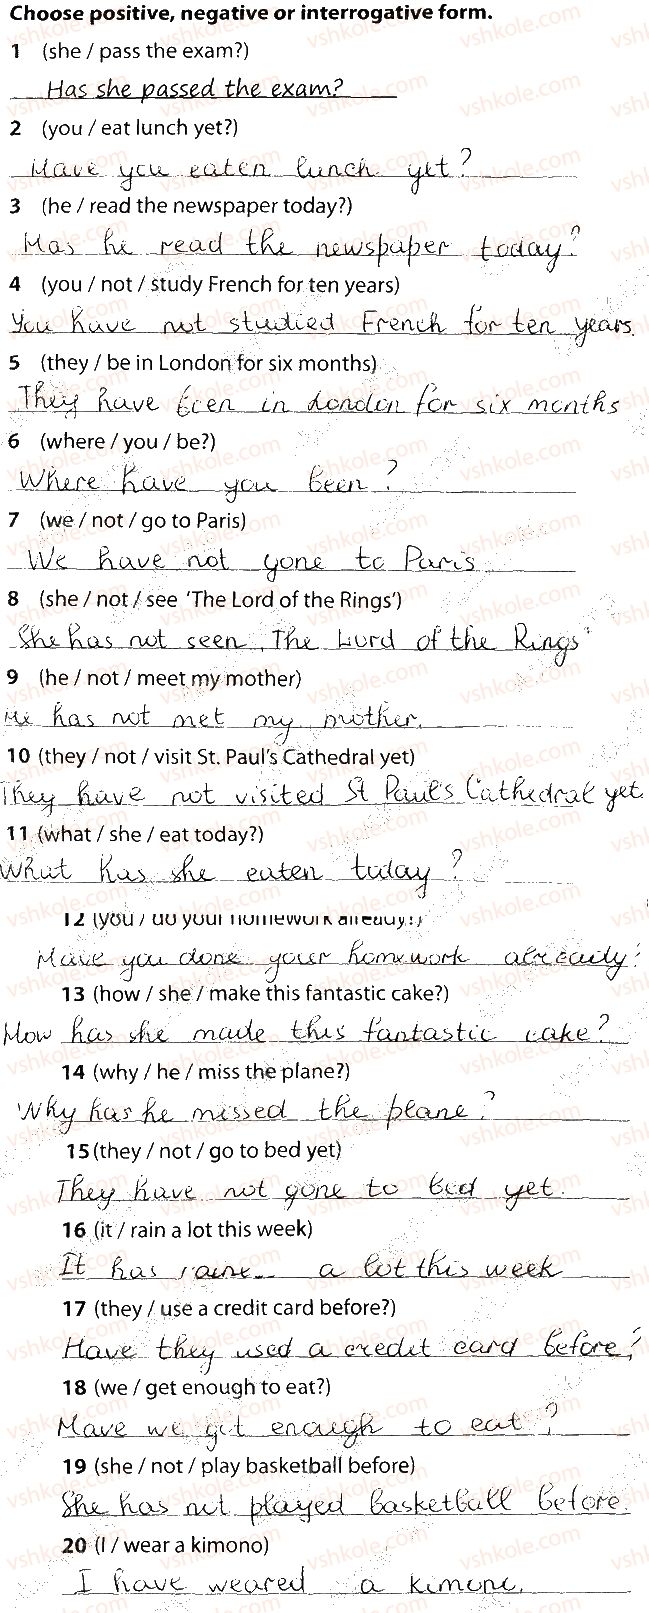 Choose positive, negative or interrogative form.
1 (she / pass the exam?)
Has she passed the exam?
2 (you / eat lunch yet?)
Have you eaten lunch yet?
3 (he / read the newspaper today?)
Has he read the newspaper today?
4 (you / not / study French for ten years)
You have not studied French for ten years.
5 (they / be in London for six months)
They have been in London for six months
6 (where / you / be?)
Where have you been?
7 (we / not / go to Paris)
We have not gone to Paris
8 (she / not / see 'The Lord of the Rings')
She has not seen 'The Lord of the Rings'
9 (he / not / meet my mother)
He has not met my mother.
10 (they / not / visit St. Paul's Cathedral yet)
They have not visited St Paul's Cathedral yet
11 (what / she / eat today?)
What has she eaten today?
12 (you / do your homework already?)
Have you done your homework already?
13 (how / she / make this fantastic cake?)
How has she made this fantastic cake?
14 (why / he / miss the plane?)
Why has he missed the plane?
15 (they / not / go to bed yet)
They have not gone to bed yet.
16 (it / rain a lot this week)
It has a lot this week
17 (they / use a credit card before?)
Have they used a credit card before?
18 (we / get enough to eat?)
Have we got enough to eat?
19 (she / not / play basketball before)
She has not played basketball before.
20 (I / wear a kimono)
I have weared a kimono.
vshkole.com